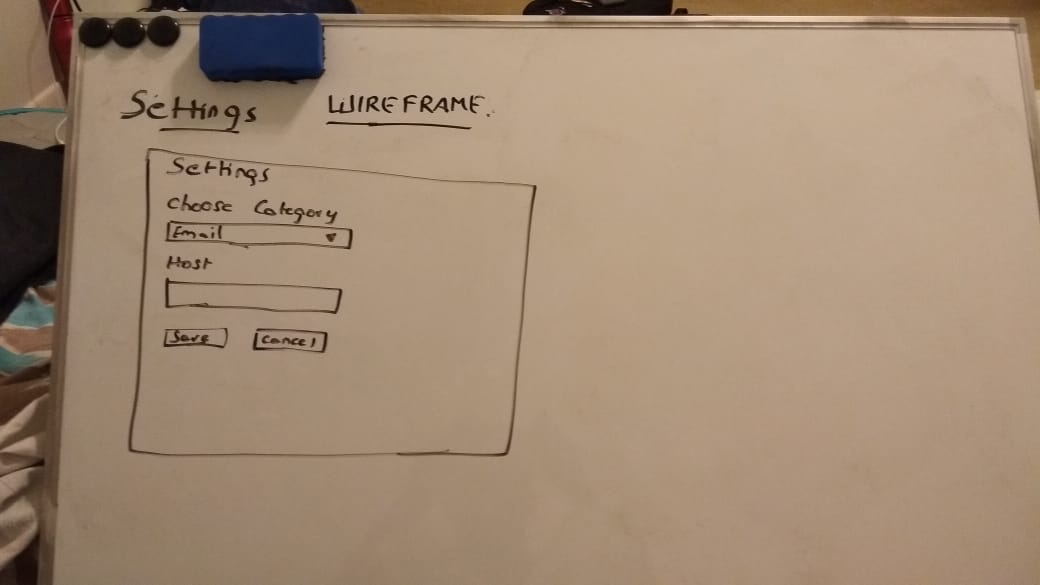 Settings WIREFRAME.
Settings
Choose Category
Email
Host
Save Cancel